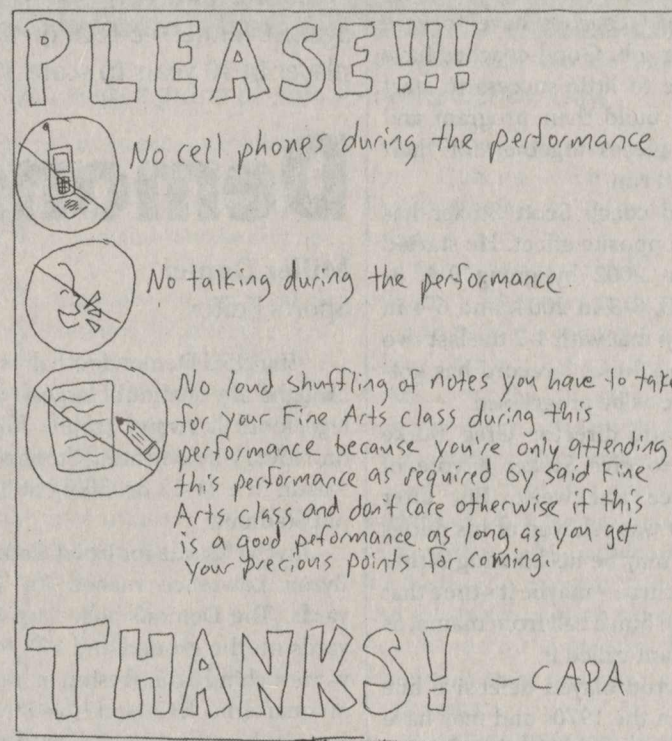 PLEASE!!!
No cell phones during the performance
No talking during the performance.
No loud shuffling of notes you have to take
for your Fine Arts class during this
performance because you're only attending
this performance as required by said Fine
Arts class and don't care otherwise if this
is a good peformance as long as you get
your precious points for coming.
THANKS!
CAPA